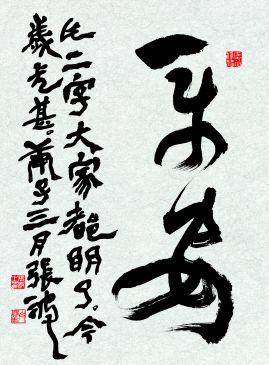 平安
此二字大家都明了。今
歲尤甚。庚子三月張